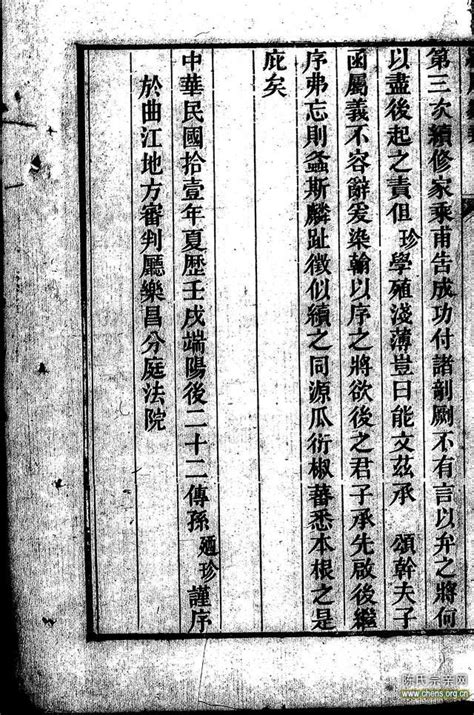 第三次續修家乘甫告成功付諸剞劂不有言以弁之將何
以盡後起之責但珍學殖淺薄豈曰能文茲承　頌幹夫子
函屬義不容辭爰染翰以序之將欲後之君子承先啟後繼
序弗忘則螽斯麟趾徵似續之同源瓜衍椒蕃悉本根之是
庇矣
中華民國拾壹年夏歷壬戌端陽後二十二傳孫廼珍謹序
於曲江地方審判廳樂昌分庭法院
陈氏宗亲网
www.chens.org.cn